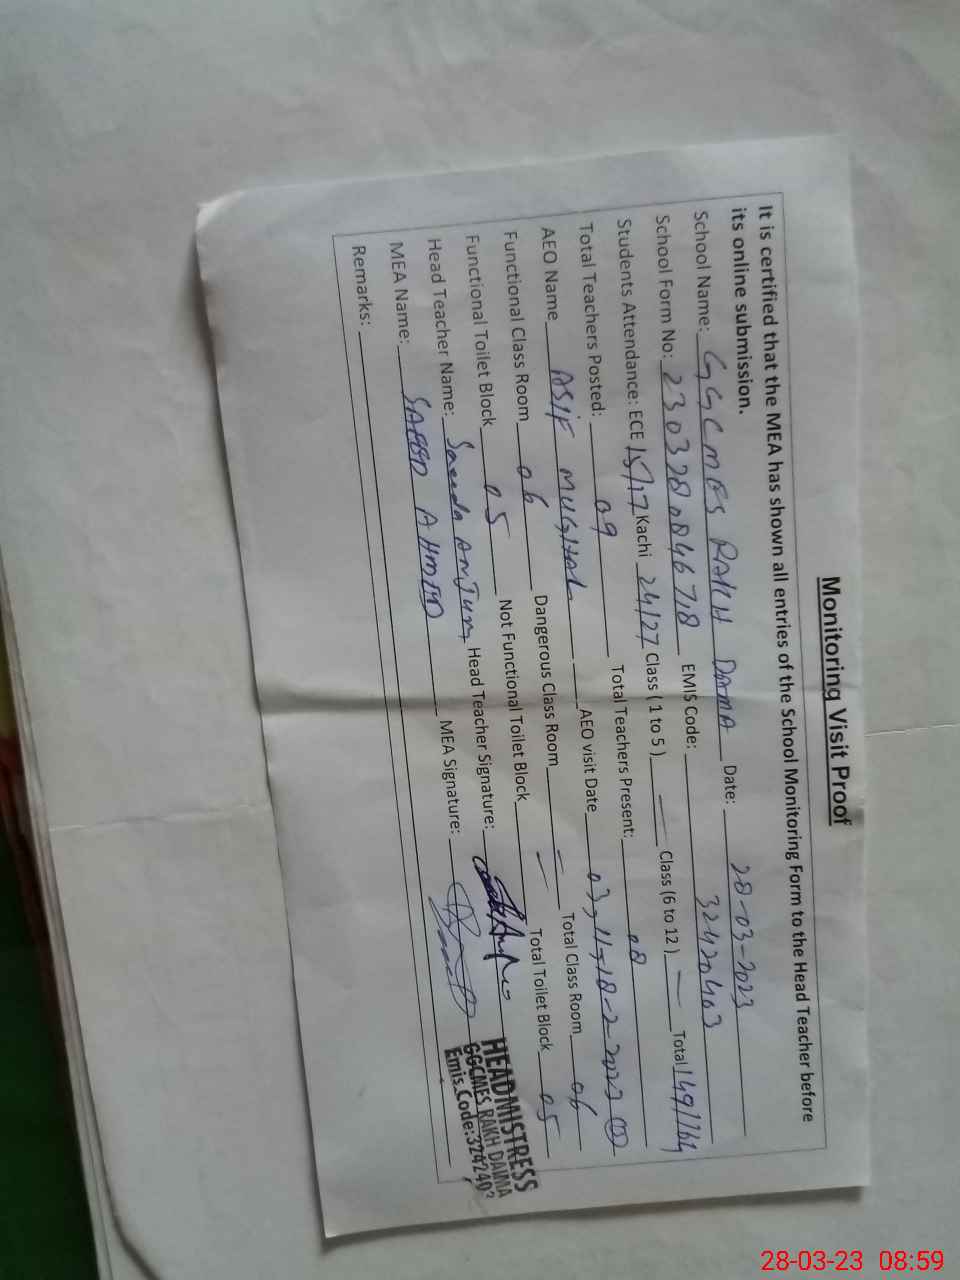 Monitoring Visit Proof
It is certified that the MEA has shown all entries of the School Monitoring Form to the Head Teacher before
its online submission.
School Name: GGCMES RAKH DAIMA Date: 28-03-2023
School Form No: 230328084678 EMIS Code: 32420403
Students Attendance: ECE 15/17 Kachi 24/27 Class (1 to 5) — Class (6 to 12) — Total 149/164
Total Teachers Posted: 09 Total Teachers Present: 08
AEO Name ASIF MUGHAL AEO visit Date 03, 11, 18-2-2023
Functional Class Room 06 Dangerous Class Room — Total Class Room 06
Functional Toilet Block 05 Not Functional Toilet Block — Total Toilet Block 05
Head Teacher Name: Saeeda Anjum Head Teacher Signature:
MEA Name: SAEED AHMED MEA Signature:
Remarks:
HEADMISTRESS
GGCMES RAKH DAIMA
Emis.Code:
28-03-23 08:59